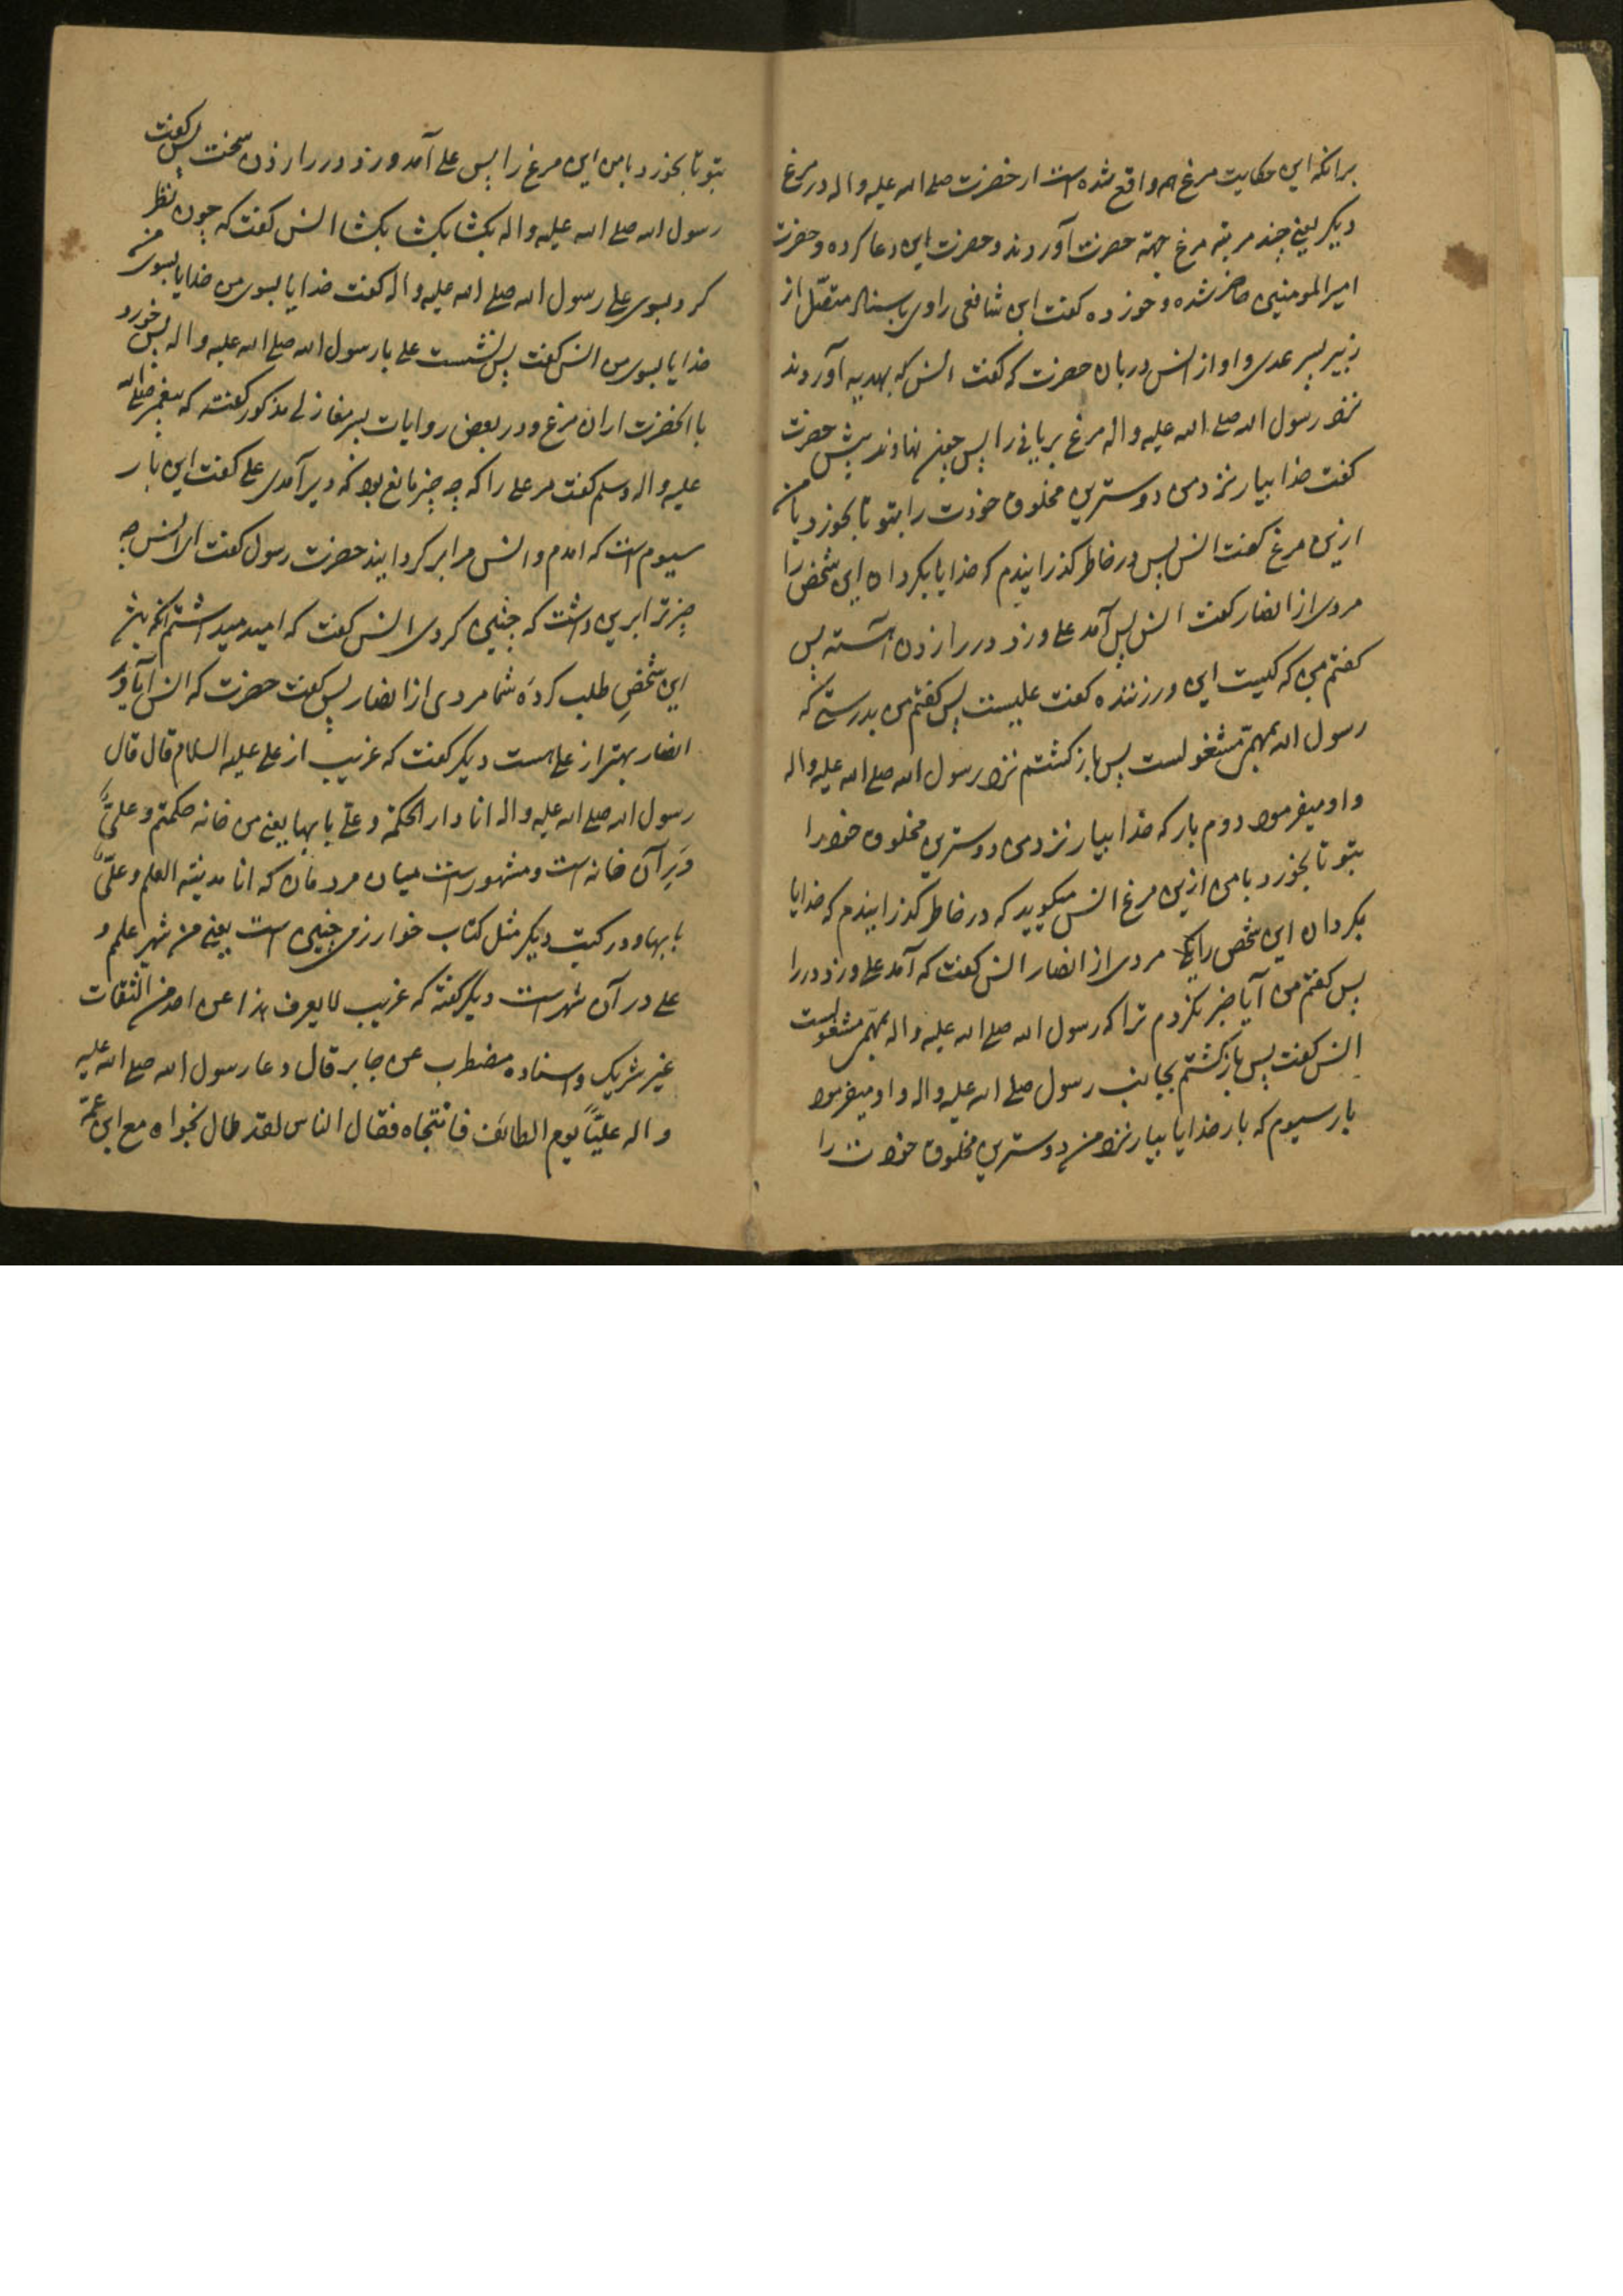 برانکه این حکایت مرغ هم واقع شده است از حضرت صلی الله علیه واله در مرغ
دیکر یعنی چند مرتبه مرغ جهة حضرت آوردند و حضرت این دعا کرده و حضرت
امیرالمومنین حاضر شده و خورده کفت ابن شافعی راوی باسناد متصل از
زبیر بسر عدی و او از انس دربان حضرت که کفت انس که بهدیه آوردند
نزد رسول الله صلی الله علیه واله مرغ بریانی را پس چون نهاوند پیش حضرت
کفت خدا بیار نزد من دوسترین مخلوق خودت را بتو تا بخورد با من
ازین مرغ کفت انس پس در خاطر کذرانیدم که خدایا بکردان این شخص را
مردی از انصار کفت انس پس آمد علی و زد در را زدن آهسته پس
کفتم من که کیست این در زننده کفت علیست پس کفتم من بدرستی که
رسول الله بمهمّی مشغولست پس بازکشتم نزد رسول الله صلی الله علیه واله
و او میفرمود دوم بار که خدا بیار نزد من دوسترین مخلوق خود را
بتو تا بخورد با من ازین مرغ انس میکوید که در خاطر کذرانیدم که خدایا
بکردان این شخص را مردی از انصار انس کفت که آمد علی و زد در را
پس کفتم من آیا خبر نکردم ترا که رسول الله صلی الله علیه واله بمهمّی مشغولست
انس کفت پس بازکشتم بجانب رسول صلی الله علیه واله و او میفرمود
بار سیوم که بار خدایا بیار نزد من دوسترین مخلوق خودت را
بتو تا بخورد با من این مرغ را پس علی آمد و زد در را زدن سخت پس کفت
رسول الله صلی الله علیه واله بکشا بکشا بکشا انس کفت که چون نظر
کرد بسوی علی رسول الله صلی الله علیه واله کفت خدایا بسوی من خدایا بسوی من
خدایا بسوی من انس کفت پس نشست علی با رسول الله صلی الله علیه واله پس خورد
با انحضرت ازان مرغ و در بعض روایات بسر مغازلی مذکور کفته که پیغمبر صلی الله
علیه واله وسلم کفت مر علی را که چه چیز مانع بود که دیر آمدی علی کفت این بار
سیوم است که امدم و انس مرا بر کردانید حضرت رسول کفت ای انس چه
چیز ترا برین داشت که چنین کردی انس کفت که امید میداشتم انکه باشد
این شخصِ طلب کردهٔ شما مردی از انصار پس کفت حضرت که انس آیا در
انصار بهتر از علی هست دیکر کفت که غریب از علی علیه السلام قال قال
رسول الله صلی الله علیه واله انا دار الحکمة و علیّ بابها یعنی من خانه حکمتم و علیّ
درِ آن خانه است و مشهور است میان مردمان که انا مدینة العلم و علیّ
بابها و در کتب دیکر مثل کتاب خوارزمی چنین است یعنی من شهر علمم و
علی در آن شهر است دیکر کفته که غریب لا یعرف هذا عن احد من الثقات
غیر شریک و اسناده مضطرب عن جابر قال دعا رسول الله صلی الله علیه
واله علیّاً یوم الطائف فانتجاه فقال الناس لقد طال نجواه مع ابن عمّه